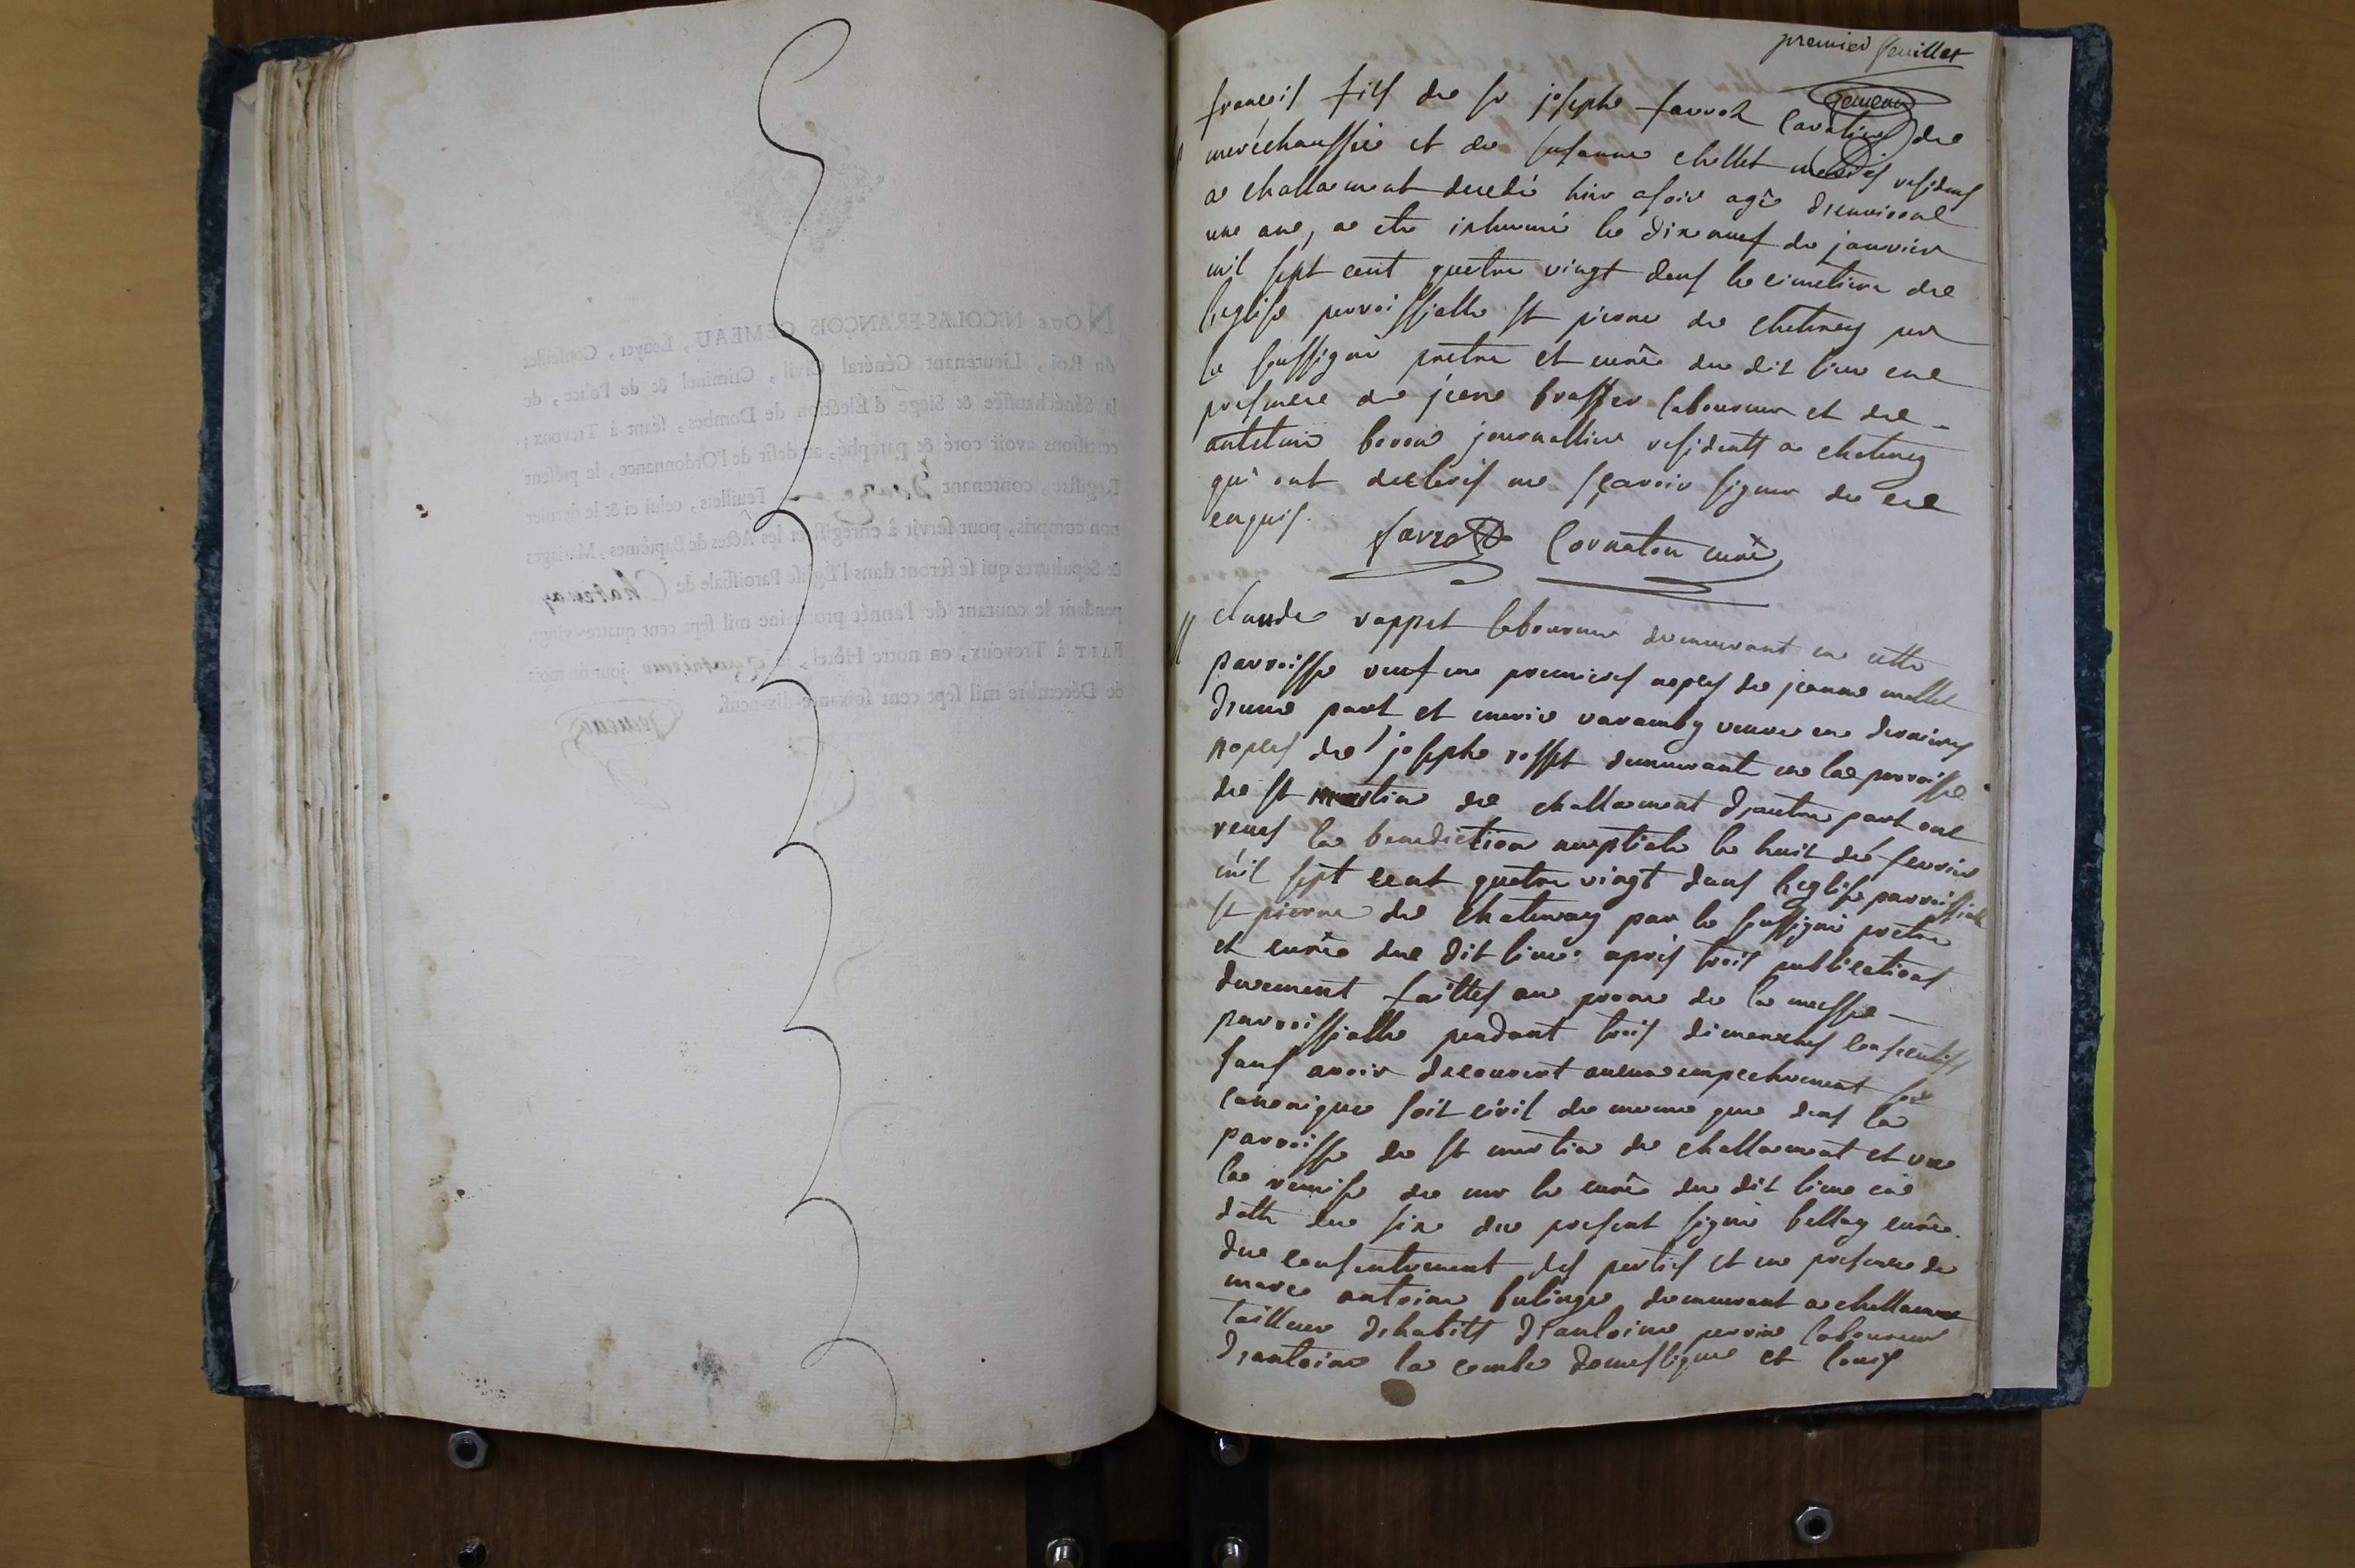 premier feuillet
Gemeau
françois fils de sr joseph farrod cavalier de
maréchaussée et de susanne chellet mariés residens
a challamont decedé hier a soir agé d'environt
un ans, a eté inhumé le dix neuf de janvier
mil sept cent quatre vingt dans le cimetiere de
l'eglise parroissialle st pierre de chatenay par
le soussigné pretre et curé du dit lieu en
presence de pierre laboureur et de
antoine journallier residents a chatenay
qui ont declarés ne sçavoir signer de ce
enquis. farrod Cornaton curé
claude rappet laboureur demeurant en cette
parroisse veuf en premieres nopces de jeanne mellet
d'une part et marie varamby veuve en dernieres
nopces de joseph demeurant en la parroisse
de st martin de challamont d'autre part ont
reçus la benediction nuptiale le huit de fevrier
mil sept cent quatre vingt dans l'eglise parroissiale
st pierre de chatenay par le soussigné pretre
et curé du dit lieu après trois publications
duement faittes au prone de la messe
parroissialle pendant trois dimanches consecutifs
sans avoir decouvert aucun empechement soit
canonique soit civil de meme que dans la
parroisse de st martin de challamont et vu
la remise de mr le curé du dit lieu en
datte du six du present signé bellay curé
du consentement des parties et en presence de
marc antoine demeurant a challamont
tailleur d'habits d'antoine perrin laboureur
d'antoine la combe domestique et louis
NOUS NICOLAS-FRANÇOIS GEMEAU, Ecuyer, Conseiller
du Roi, Lieutenant Général Civil, Criminel & de Police, de
la Sénéchaussée & Siege d'Élection de Dombes, séant à Trevoux;
certifions avoir coté & paraphé, au desir de l'Ordonnance, le présent
Registre, contenant Feuillets, celui ci & le dernier
non compris, pour servir à enrégistrer les Actes de Baptêmes, Mariages
& Sépultures qui se feront dans l'Église Paroissiale de Chatenay
pendant le courant de l'année prochaine mil sept cent quatre-vingt.
FAIT à Trevoux, en notre Hôtel, le quinzieme jour du mois
de Décembre mil sept cent soixante-dix-neuf.
Gemeau